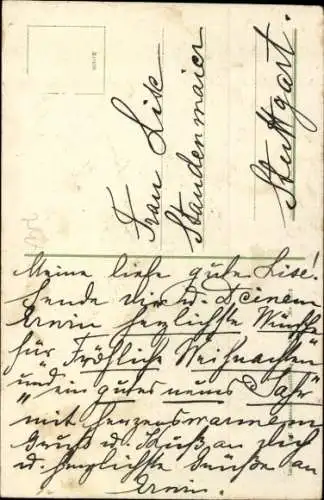 Frau Lise
Staudenmaier
Stuttgart.
Meine liebe gute Lise!
Sende Dir u. Deinem
Erwin herzlichste Wünsche
für "Fröhliche Weihnachten"
und "ein gutes neues Jahr"
mit herzenswarmem
Gruß u. Kuß an Dich
u. herzlichste Grüße an
Erwin.